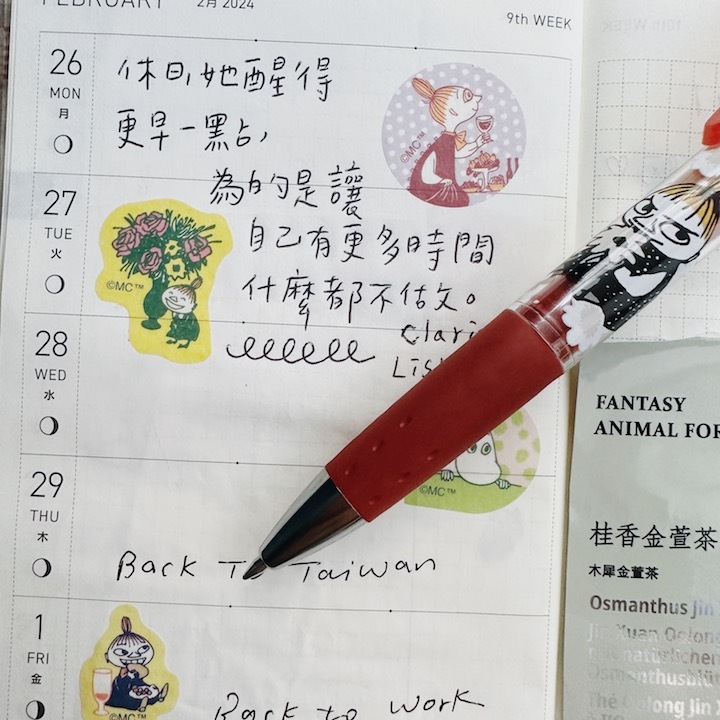 FEBRUARY
2月 2024
9th WEEK
26
MON
月
休日,她醒得
更早一點,
©MC™
27
TUE
火
為的是讓
自己有更多時間
什麼都不做。
©MC™
28
WED
水
29
THU
木
©MC™
Back To Taiwan
1
FRI
金
©MC™
Back to work
FANTASY
ANIMAL FOR
桂香金萱茶
木犀金萱茶
Osmanthus Jin
Jin Xuan Oolong
natürlichen
Osmanthusblüt
Thé Oolong Jin X